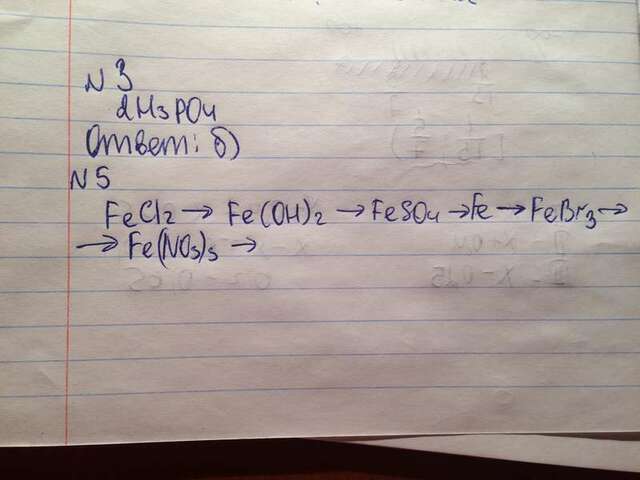 N 3
2H₃PO₄
Ответ: б)
N 5
FeCl₂ → Fe(OH)₂ → FeSO₄ → Fe → FeBr₃ →
→ Fe(NO₃)₃ →